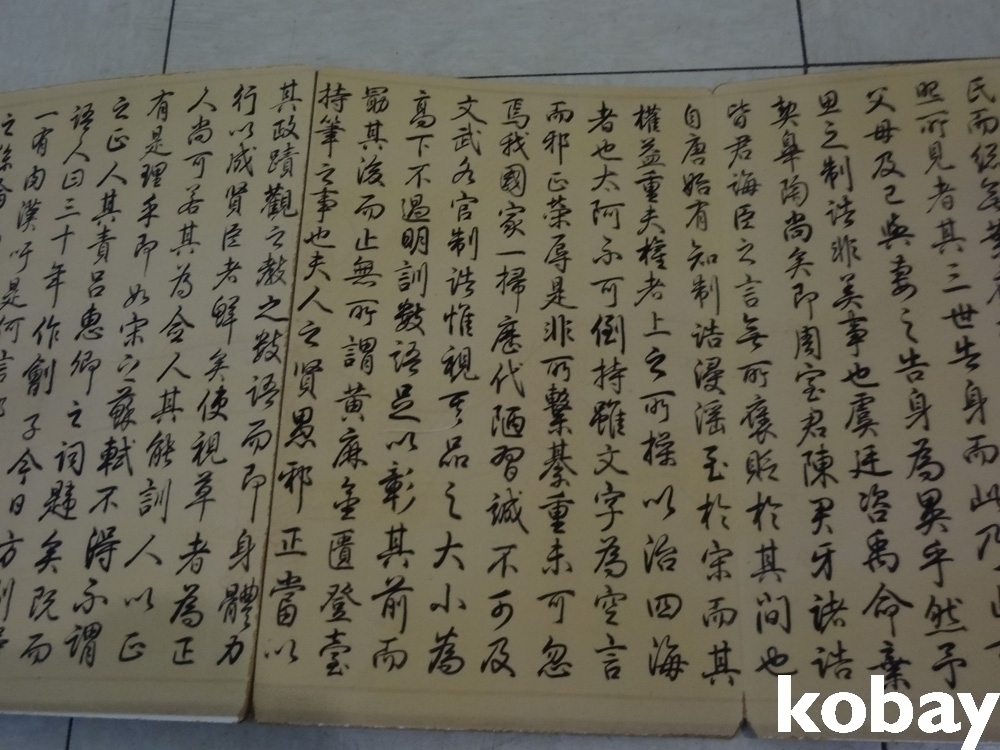 照所見者其三世告身而此乃
父母及己與妻之告身為異乎然予
思之制誥非美事也虞廷咨禹命棄
契皋陶尚矣即周室君陳君牙諸誥
皆君誨臣之言無所褒貶於其間也
自唐始有知制誥浸淫至於宋而其
權益重夫權者上之所操以治四海
者也太阿不可倒持雖文字為空言
而邪正榮辱是非所繫綦重未可忽
焉我國家一掃歷代陋習誠不可及
文武各官制誥惟視其品之大小為
高下不過明訓數語足以彰其前而
勗其後而止無所謂黃麻金匱登臺
持筆之事也夫人之賢愚邪正當以
其政蹟觀之教之數語而即身體力
行以成賢臣者鮮矣使視草者為正
人尚可若其為僉人其能訓人以正
有是理乎即如宋之蘇軾不得不謂
之正人其責呂惠卿之詞韙矣既而
語人曰三十年作劊子今日方剮
一有肉漢吁是何言
kobay